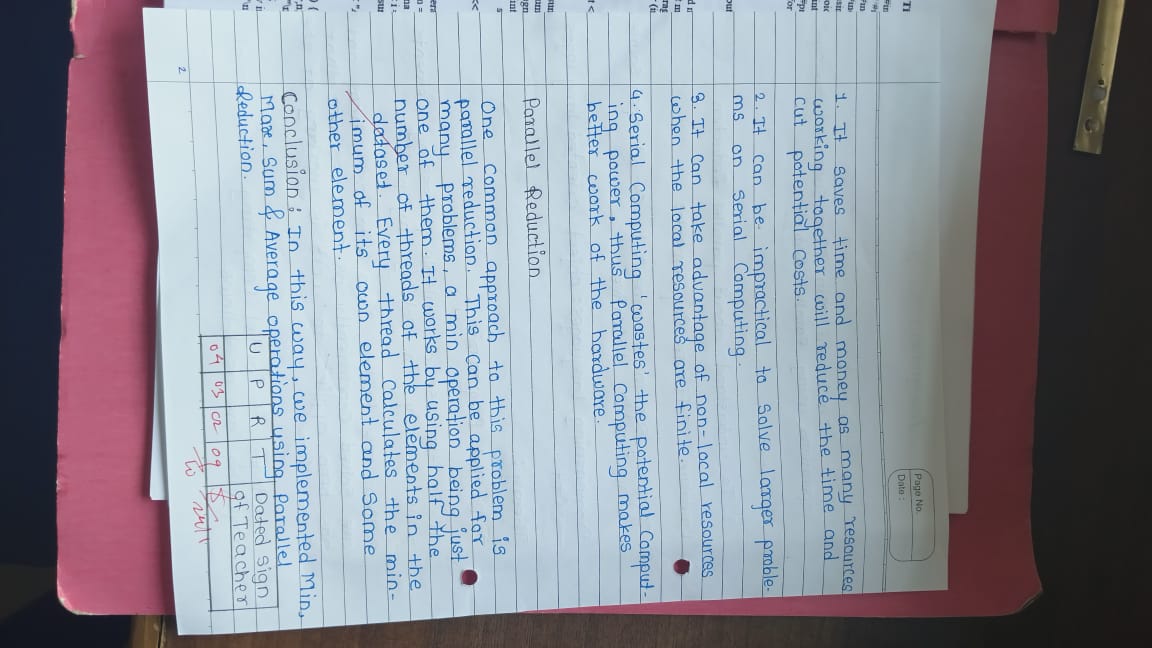 Page No.
Date :
1. It saves time and money as many resources
working together will reduce the time and
cut potential costs.
2. It can be impractical to solve larger proble-
ms on Serial Computing.
3. It can take advantage of non-local resources
when the local resources are finite.
4. Serial Computing 'wastes' the potential Comput-
ing power, thus Parallel Computing makes
better work of the hardware.
Parallel Reduction
One common approach to this problem is
parallel reduction. This can be applied for
many problems, a min operation being just
one of them. It works by using half the
number of threads of the elements in the
dataset. Every thread calculates the min-
imum of its own element and some
other element.
Conclusion : In this way, we implemented Min,
Max, Sum & Average operations using Parallel
Reduction.
U P R T Dated Sign
of Teacher
04 03 02 09
10
2